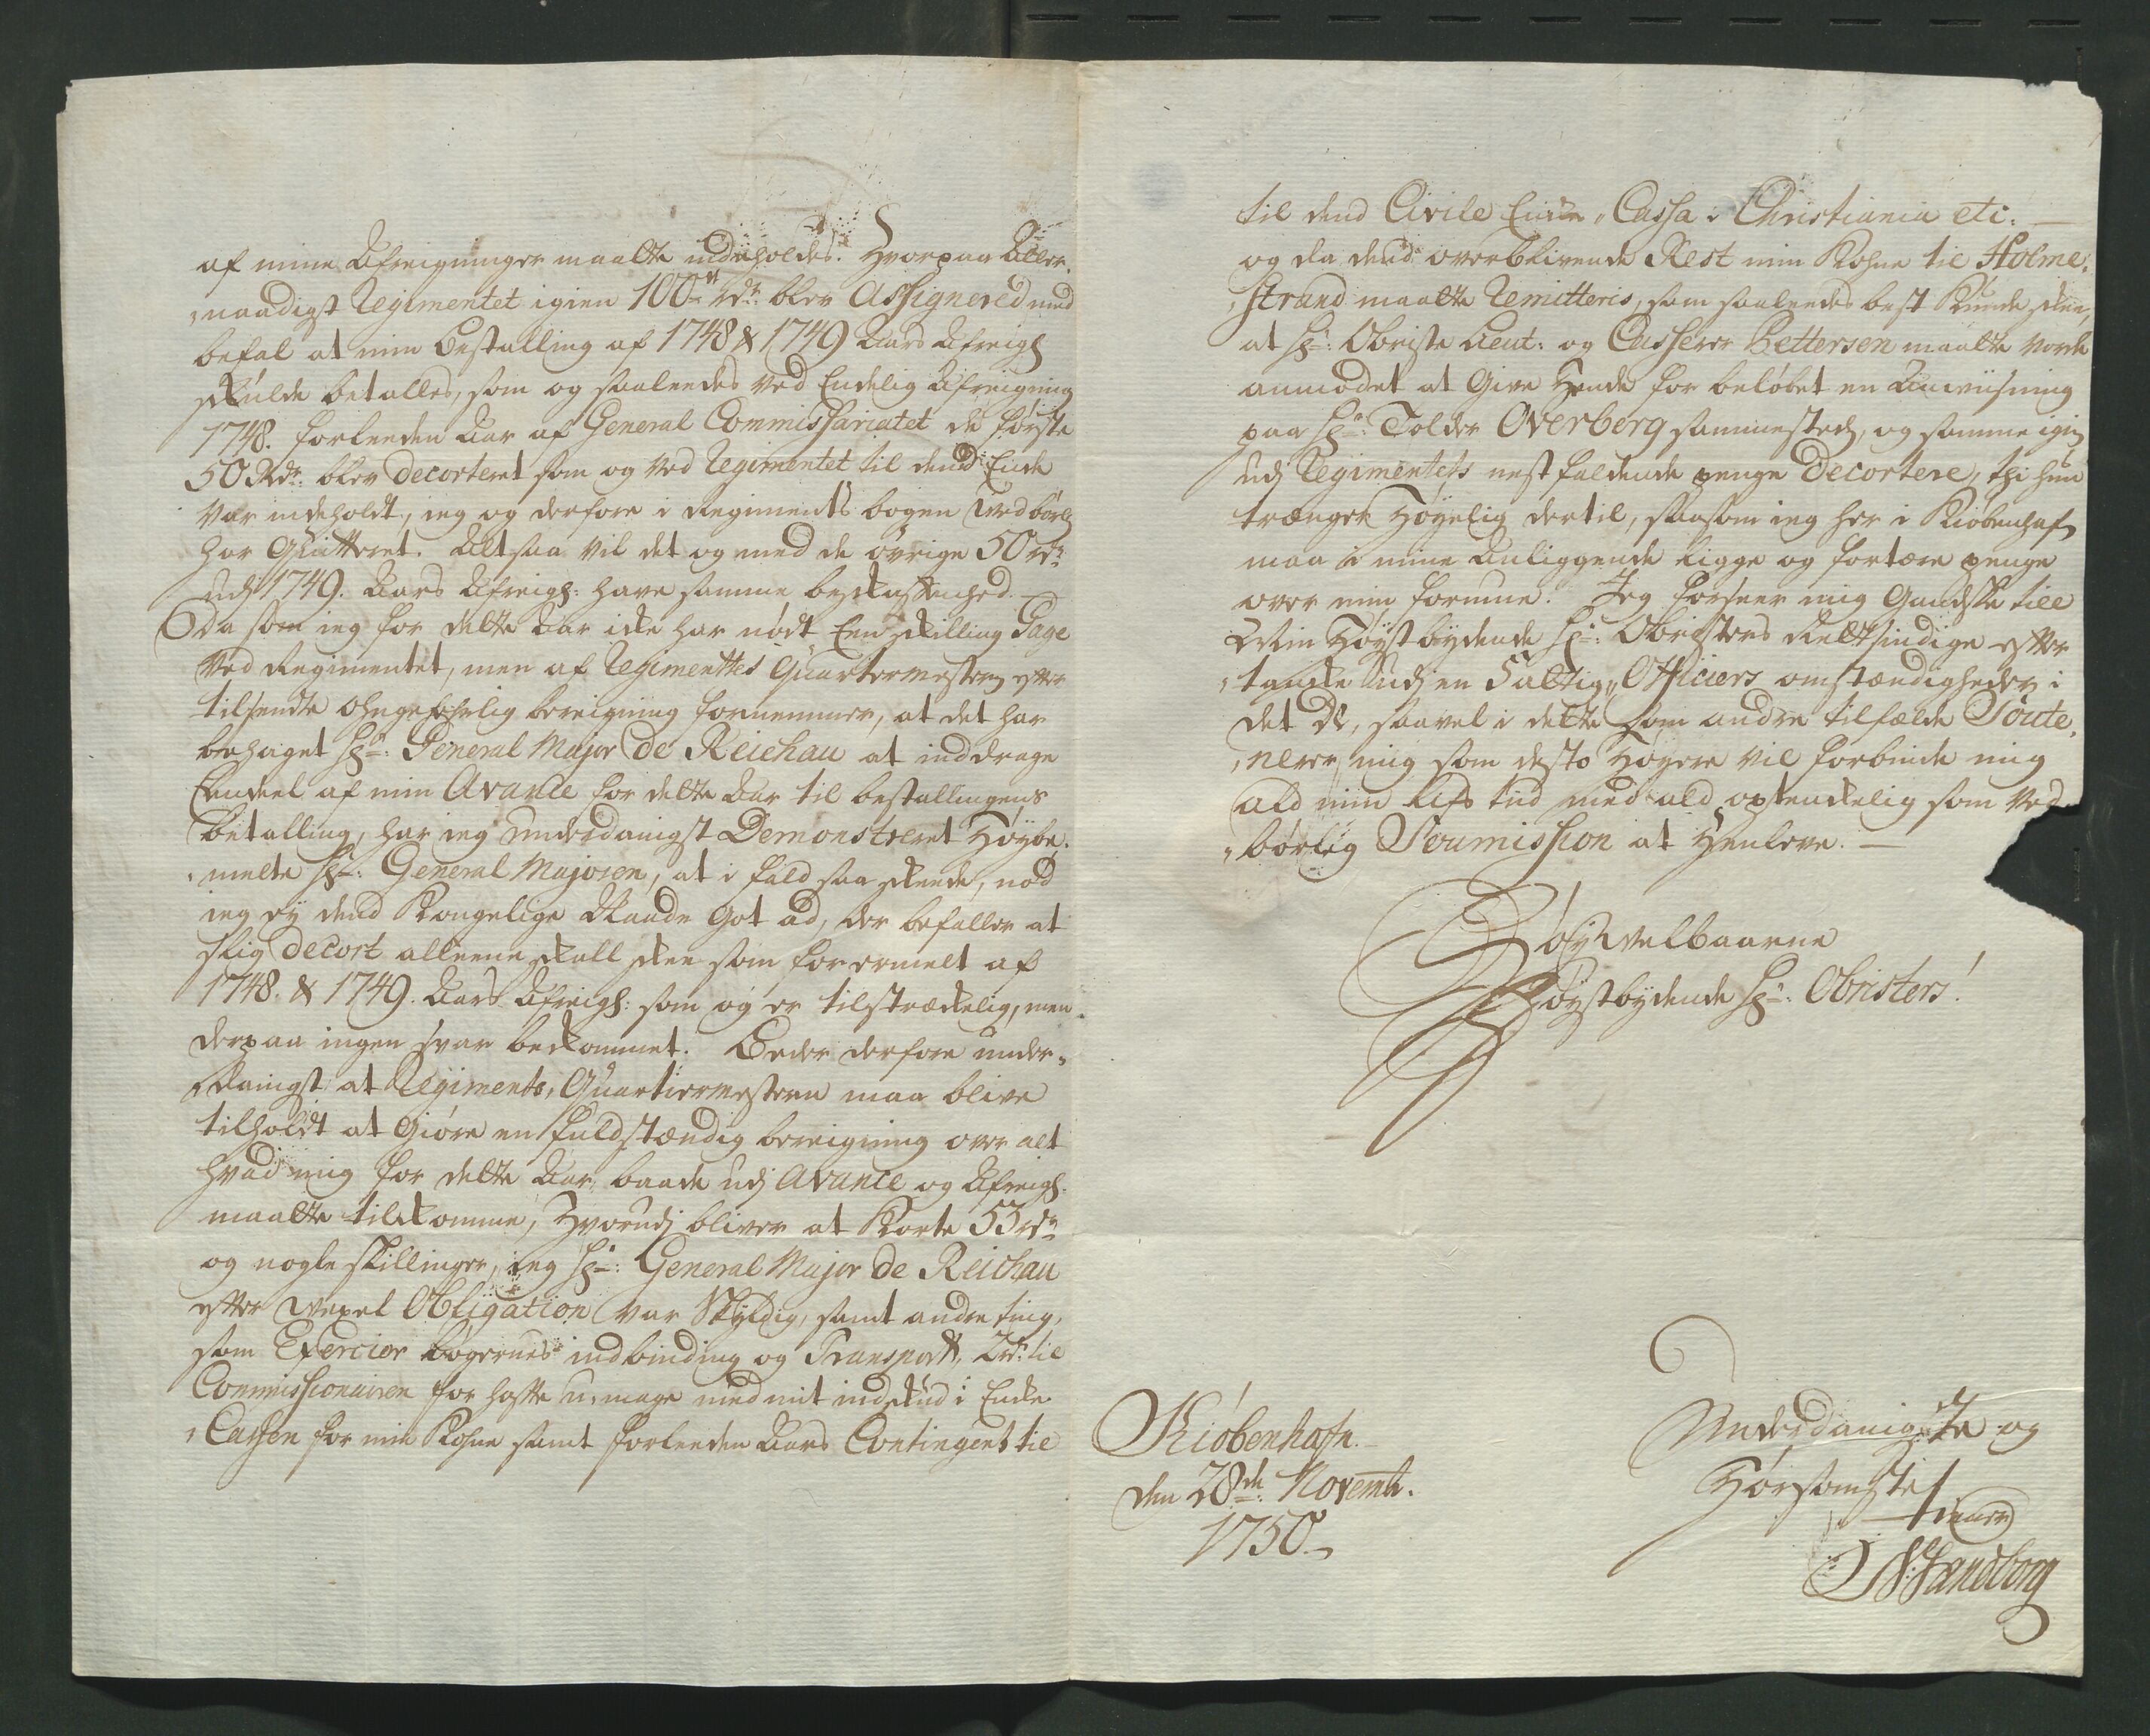 af mine Afreigninger maatte indeholdes. Hvorpaa Aller,
,naadigst Regimentet igien 100 rdr: blev Assigneredmed
befal at min bestalling af 1748 & 1749 Aars Afreigh
skulde betalles, som og saaleedes ved Endelig Afreigning
1748. forleeden Aar af General Commissariatet de første
50 Rdr: blev decorteret som og ved Regimentet til dend Ende
var indeholdt, ieg og derfore i Regiments bogen vedbørl:
har Quitteret. Altsaa vil det og med de øvrige 50 rdr
udj 1749. Aars Afreigh: have samme beskaffenhed.
Da som ieg for dette Aar icke har nødt Een skilling Gage
ved Regimentet, men af Regimenttes Quartermestern efter
tilsendte ohngefehrlig bereigning fornemmer, at det har
behaget Hr: General Major de Reichau at inddrage
Eendeel af min Avance for dette Aar til bestallingens
betalling, har ieg underdanigst Demonstreret Høybe,
,melte Hr: General Majoren, at i fald saa skeede, nød
ieg ey dend Kongelige Naade got ad, der befaller at
slig decort alleene skall skee som forermelt af
1748. & 1749. Aars Afreigh: som og er tilstreckelig, men
derpaa ingen svar bekommet. Beder derfore under,
,danigst at Regiments, Quartiermestern maa blive
tilholdt at Giøre en fuldstændig bereigning over alt
hvad mig for dette Aar baade udj Avance og Afreigh:
maatte tilkomme, Hvorudj bliver at Korte 53 rdr
og nogle skillinger, ieg Hr: General Major de Reichau
efter Vexel Obligation var Skyldig, samt andre ting,
som Exercier bøgernes indbinding og Transport, 2 rdr: til
Commissionairen for hafte u,mage med mit indskud i Encke
,Cassen for min Kohne samt forleeden Aars Contingent til
til dend Civile Encke,,Cassa i Christiania etc:
og da dend overblivende Rest min Kohne til Holme,
,strand maatte Remitteris, som saaleedes best Kunde skee,
at Hr: Obriste Lieut: og Casserer Bettersen maatte vorde
anmodet at Give Hende for beløbet en Anviisning
paa Hr: Tolder Overberg sammesteds, og samme igien
udj Regimentets nest faldende penge Decortere, thi hun
trænger Høyelig dertil, saasom ieg her i Kiøbenhafn
maa i mine Anliggende ligge og fortære penge
over min formue. Jeg forseer mig Gandske till
Min Høystbydende Hr: Obristers Rettsindige efter
,tancke udj en fattig,,Officiers omstændigheder i
det De, saavel i dette som andre tilfælde Soute,
,nerer mig som desto Høyere vil forbinde mig
ald min Lifs tiid med ald optenckelig som ved
,børlig Soumission at Henleve.
Høy Velbaarne
Høystbydende Hr: Obristers!
Kiøbenhafn.
den 28de: Novemb.
1750.
Underdanigste og
Hørsomste
tienere
N: Sandborg